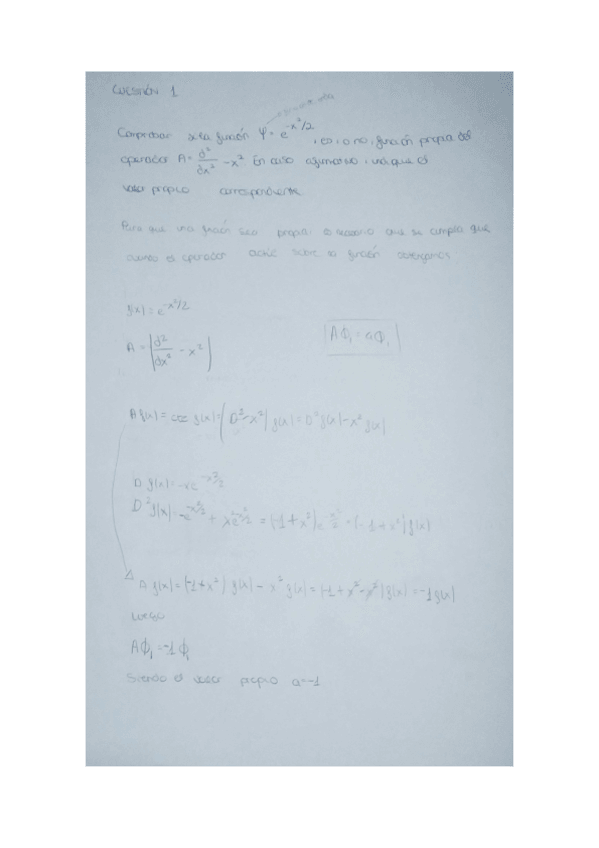 CUESTIÓN 1
Comprobar si la función Ψ = e^{-x²/2}, es, o no, función propia del
operador A = d²/dx² - x² En caso afirmativo, indique el
valor propio correspondiente.
Para que una función sea propia es necesario que se cumpla que
cuando el operador actúe sobre la función obtengamos
f(x) = e^{-x²/2}
A = |d²/dx² - x²| AΦ₁ = aΦ₁
A f(x) = g(x) = (D² - x²) g(x) = D² g(x) - x² g(x)
D g(x) = -xe^{-x²/2}
D² g(x) = -e^{-x²/2} + x e^{-x²/2} = (-1 + x²) e^{-x²/2} = (-1 + x²) g(x)
g(x) = (-1 + x²) g(x) - x² g(x) = (-1 + x² - x²) g(x) = -1 g(x)
Luego
AΦ₁ = -1 Φ₁
Siendo el valor propio a = -1